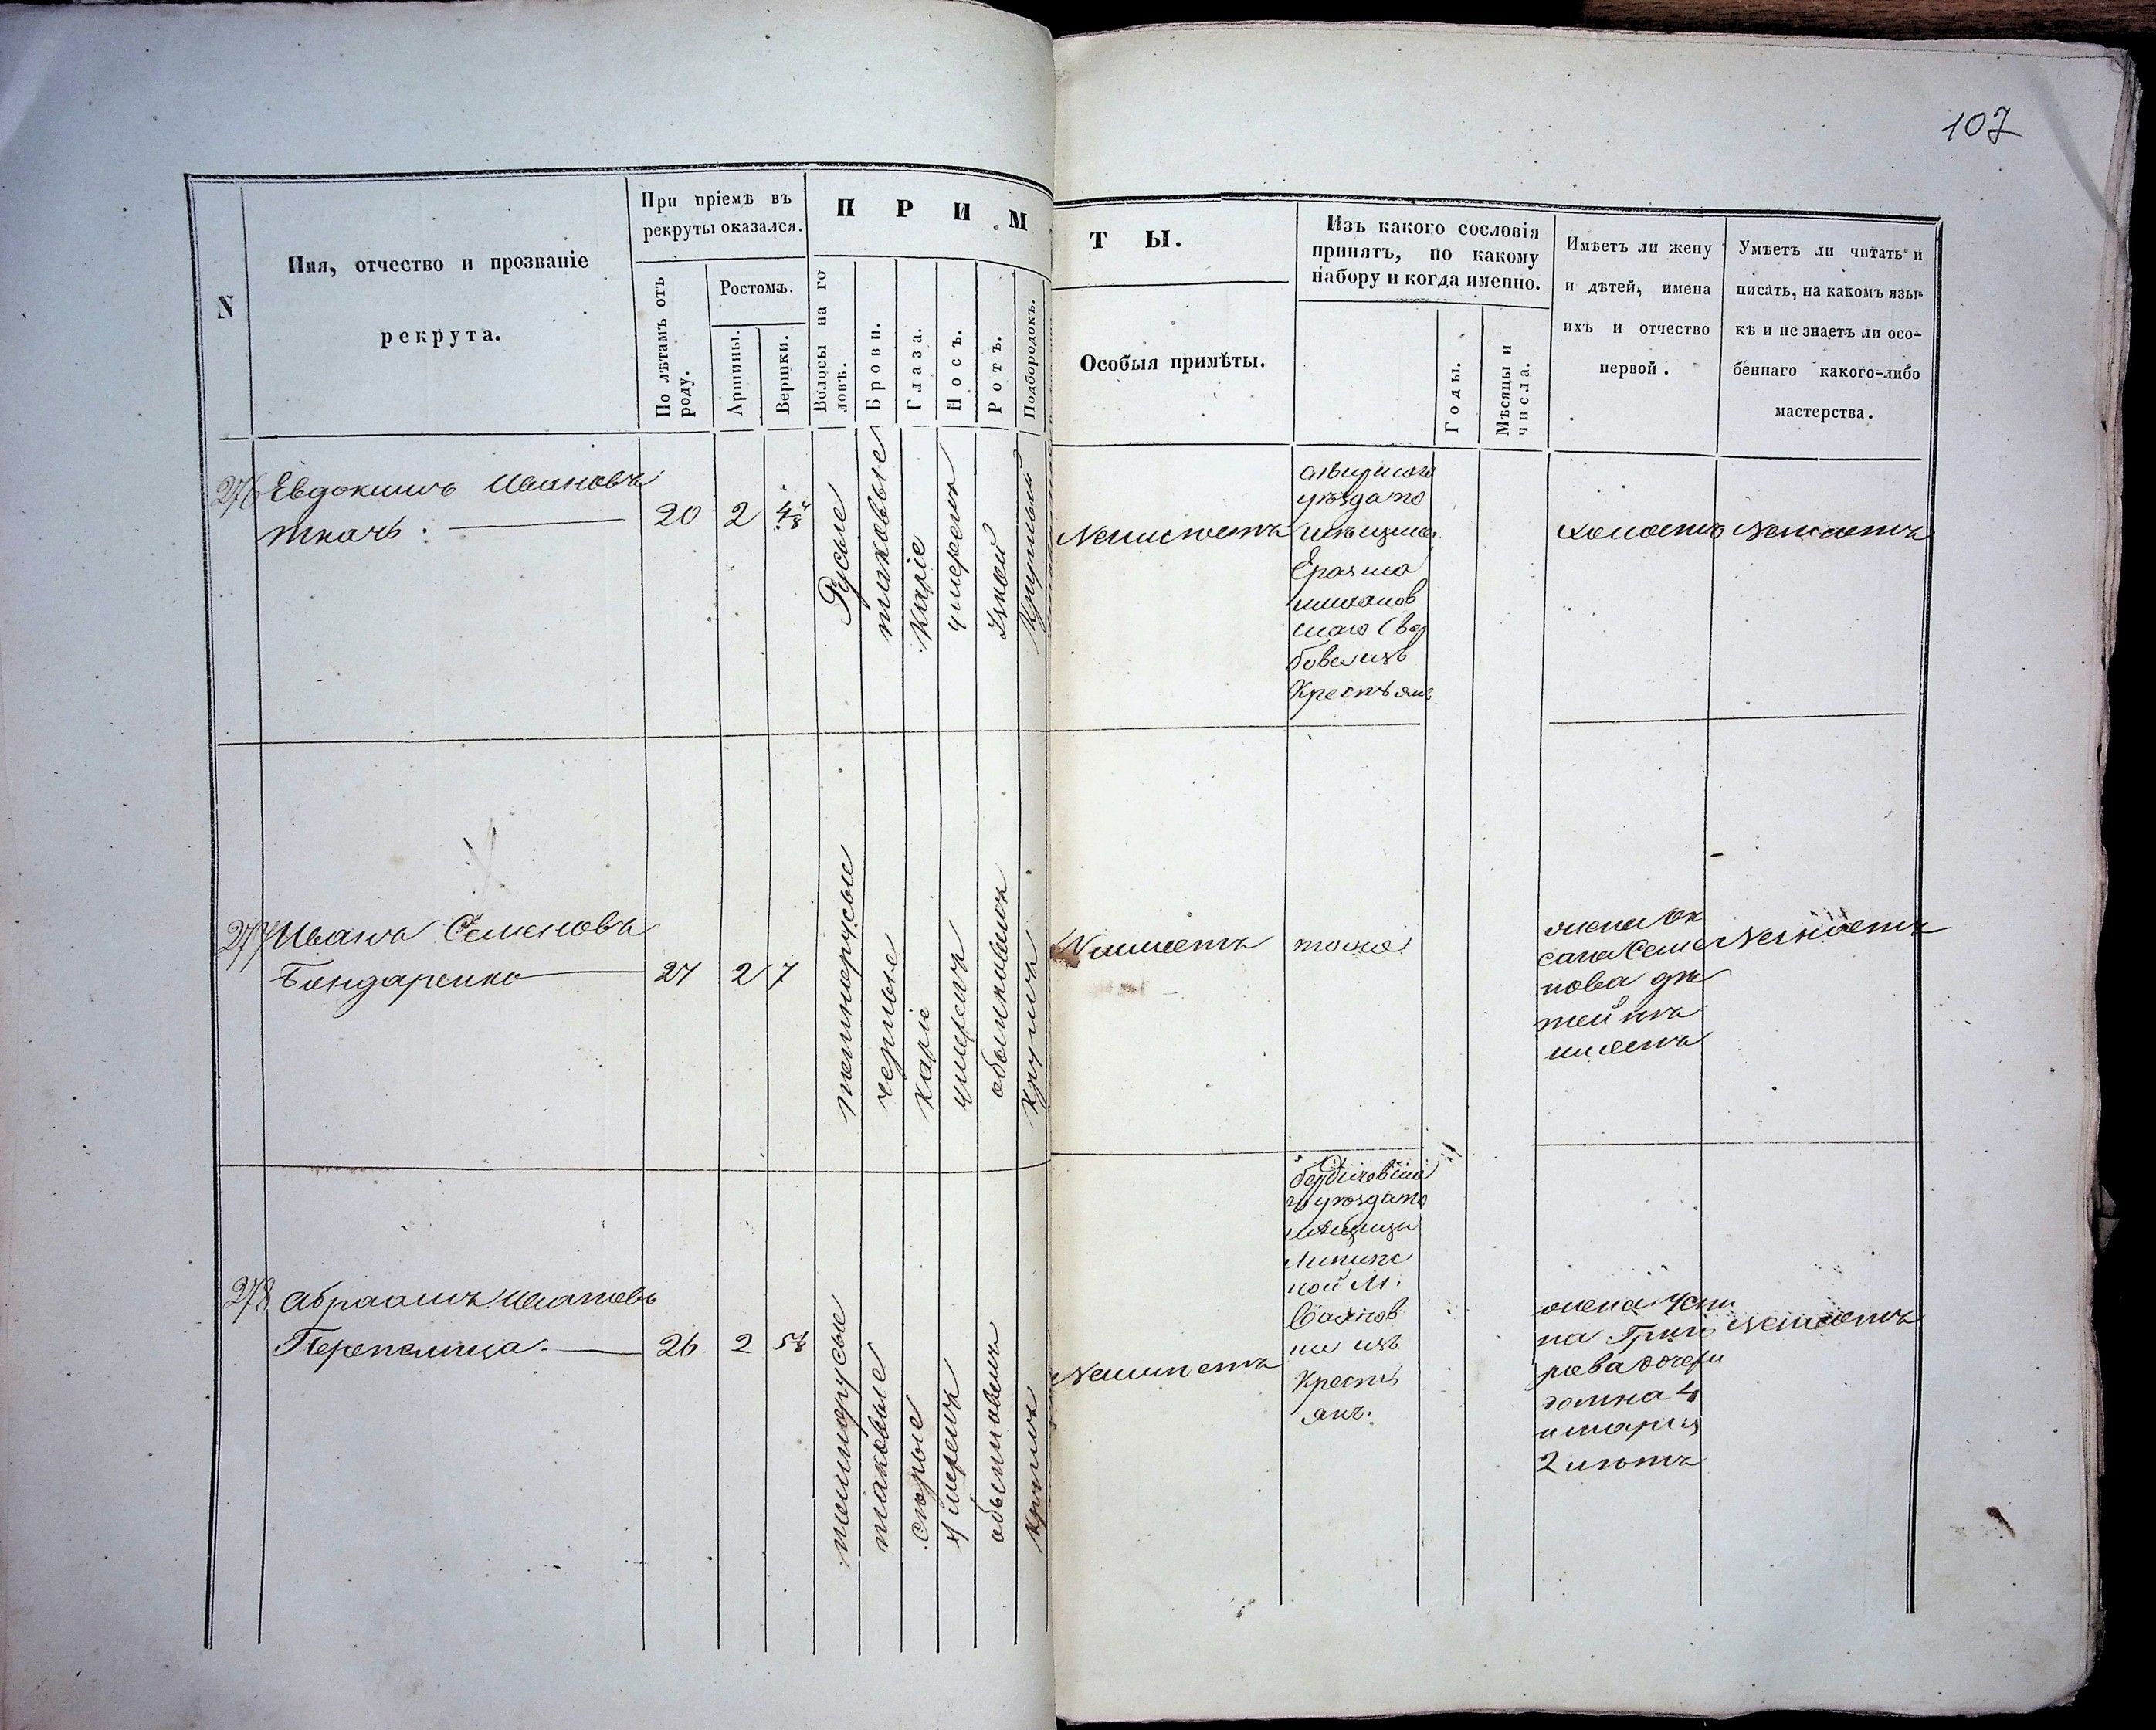 107
N
Имя, отчество и прозваніе
рекрута.
При пріемѣ въ
рекруты оказался.
По лѣтамъ отъ
роду.
Ростомъ.
Аршины.
Вершки.
П Р И М
Волосы на го
ловѣ.
Брови.
Глаза.
Носъ.
Ротъ.
Подбородокъ.
Т Ы.
Особыя примѣты.
Изъ какого сословія
принятъ, по какому
набору и когда именно.
Годы.
Мѣсяцы и
числа.
Имѣетъ ли жену
и дѣтей, имена
ихъ и отчество
первой.
Умѣетъ ли читать и
писать, на какомъ язы-
кѣ и не знаетъ ли осо-
беннаго какого-либо
мастерства.
276 Евдокимъ Ивановъ
Ткачъ:
20
2
Русые
таковые
каріе
умѣренъ
Круглый
Неимѣетъ
уѣзда по
мѣщика
Ераzма
изъ
Крестьянъ
холостъ
Незнаетъ
277 Иванъ Семеновъ
Бондаренко
2
7
темнорусые
черные
каріе
умѣренъ
обыкновенъ
круглъ
Неимѣетъ
тоже
жена Ок
сана Семе
нова дѣ
тей не
имѣетъ
Незнаетъ
278 Абраамъ Ивановъ
Перепелица.
26
2
темнорусые
таковые
сѣрые
умѣренъ
обыкновенъ
круглъ
Неимѣетъ
бердичевска
го уѣзда по
мѣщицы
Липинс
кой М.
изъ
Кресть
янъ.
жена Усти
на Григо
рьева дочери
домна 4
и марія
2 лѣтъ
Незнаетъ